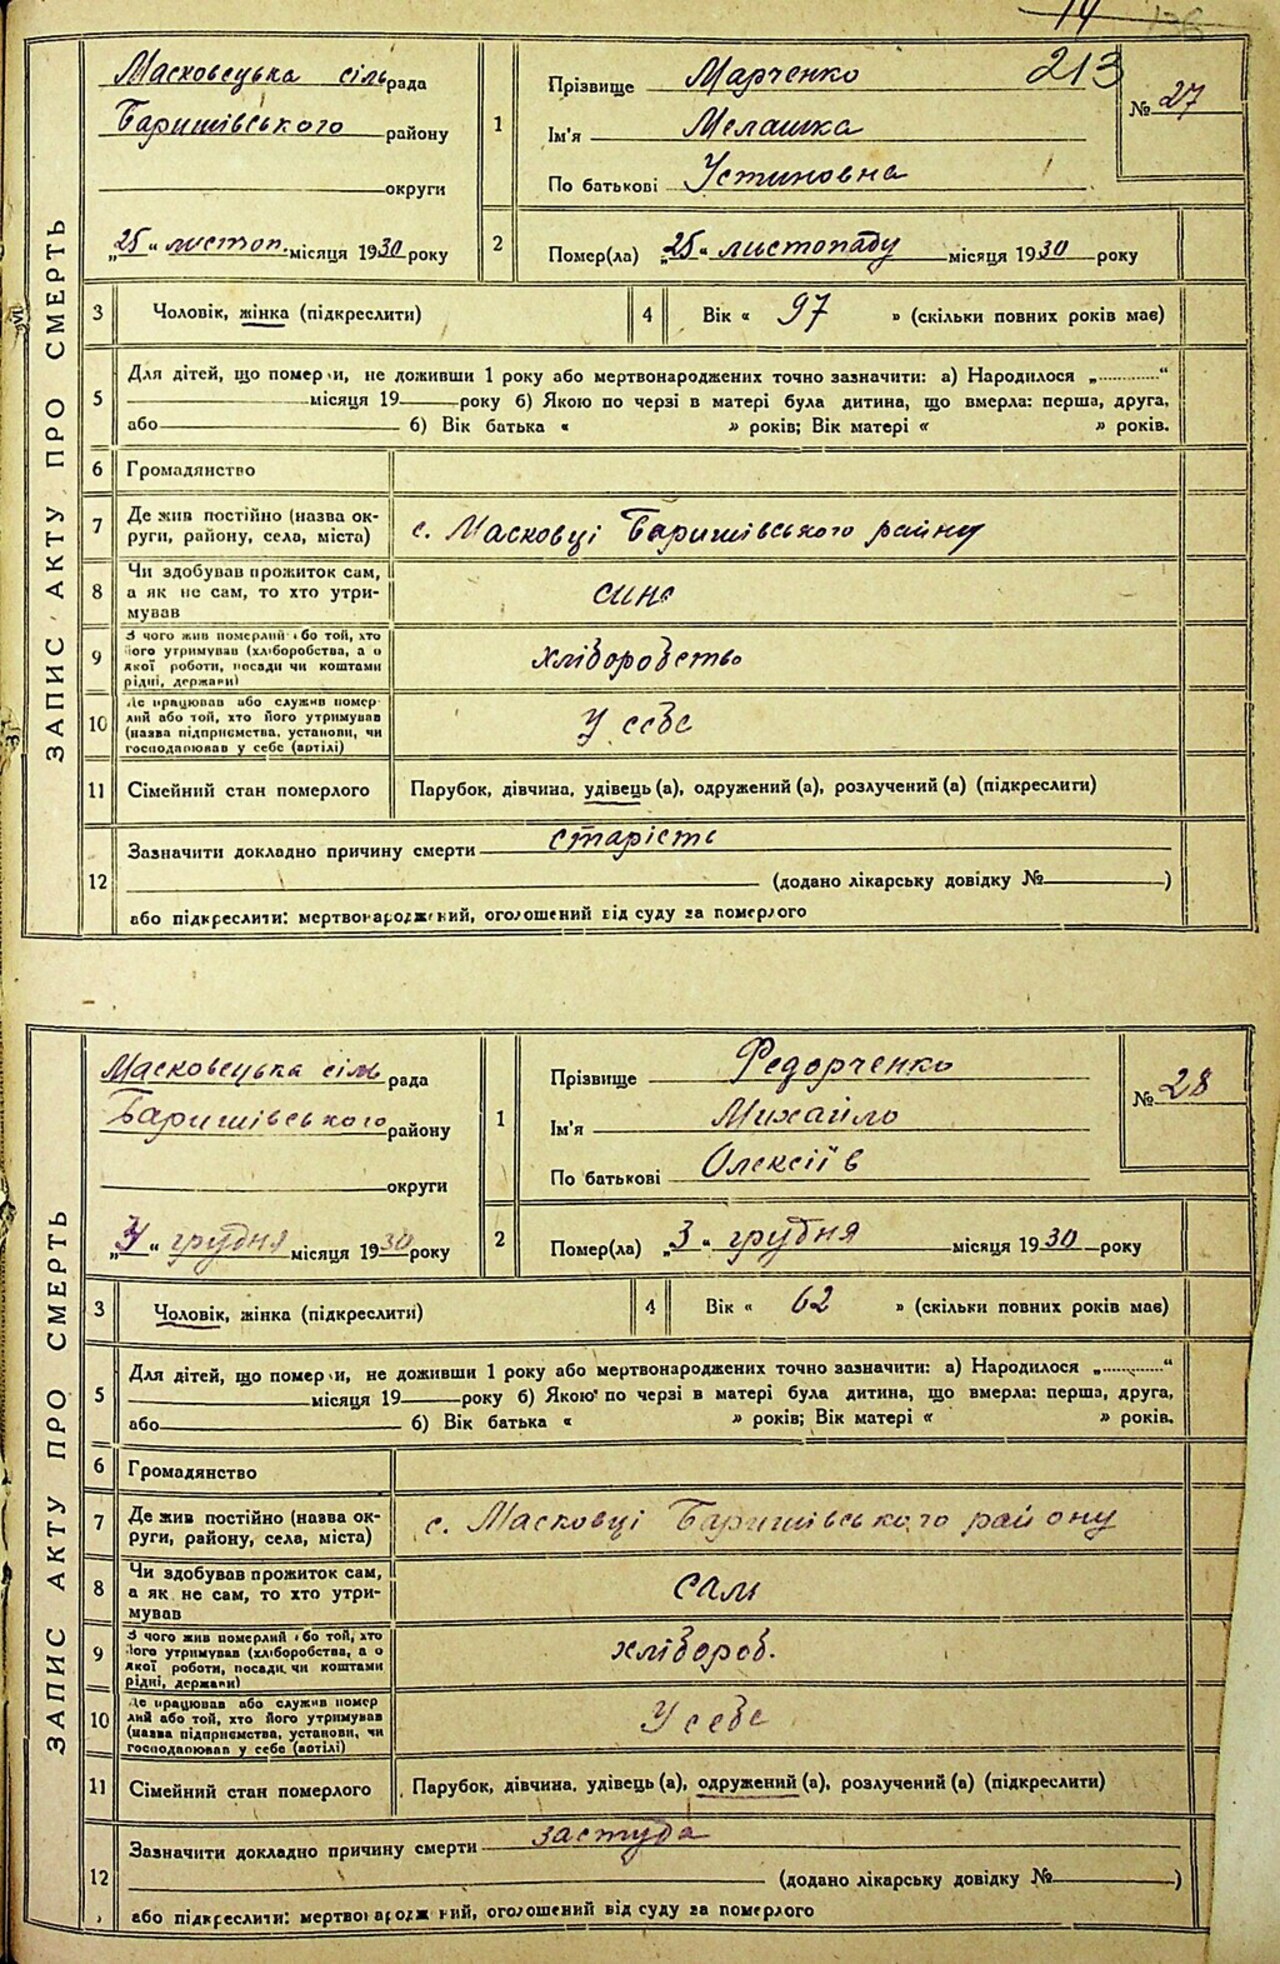 14 136
213
ЗАПИС АКТУ ПРО СМЕРТЬ
Масковецька сільрада
Баришівського району
округи
„25“ листоп. місяця 1930 року
1
Прізвище Марченко
Ім'я Мелашка
По батькові Устиновна
№ 27
2
Помер(ла) „25“ листопаду місяця 1930 року
3 Чоловік, жінка (підкреслити)
4 Вік « 97 » (скільки повних років має)
5 Для дітей, що помер и, не доживши 1 року або мертвонароджених точно зазначити: а) Народилося „..........“
місяця 19 року б) Якою по черзі в матері була дитина, що вмерла: перша, друга,
або б) Вік батька « » років; Вік матері « » років.
6 Громадянство
7 Де жив постійно (назва ок-
руги, району, села, міста)
с. Масковці Баришівського райну
8 Чи здобував прожиток сам,
а як не сам, то хто утри-
мував
сине
9 З чого жив померлий або той, хто
його утримував (хліборобства, а о
якої роботи, посади чи коштами
рідні, держави)
хліборобство
10 Де працював або служив помер
лий або той, хто його утримував
(назва підприємства, установи, чи
господарював у себе (артілі)
У себе
11 Сімейний стан померлого Парубок, дівчина, удівець (а), одружений (а), розлучений (а) (підкреслити)
12 Зазначити докладно причину смерти старість
(додано лікарську довідку № )
або підкреслити: мертвонароджений, оголошений від суду за померлого
ЗАПИС АКТУ ПРО СМЕРТЬ
Масковецька сільрада
Баришівського району
округи
грудня місяця 1930 року
1
Прізвище Федорченко
Ім'я Михайло
По батькові Олексіїв
№ 28
2
Помер(ла) „3“ грудня місяця 1930 року
3 Чоловік, жінка (підкреслити)
4 Вік « 62 » (скільки повних років має)
5 Для дітей, що помер и, не доживши 1 року або мертвонароджених точно зазначити: а) Народилося „..........“
місяця 19 року б) Якою по черзі в матері була дитина, що вмерла: перша, друга,
або б) Вік батька « » років; Вік матері « » років.
6 Громадянство
7 Де жив постійно (назва ок-
руги, району, села, міста)
с. Масковці Баришівського району
8 Чи здобував прожиток сам,
а як не сам, то хто утри-
мував
сам
9 З чого жив померлий або той, хто
його утримував (хліборобства, а о
якої роботи, посади чи коштами
рідні, держави)
хлібороб.
10 Де працював або служив помер
лий або той, хто його утримував
(назва підприємства, установи, чи
господарював у себе (артілі)
У себе
11 Сімейний стан померлого Парубок, дівчина, удівець (а), одружений (а), розлучений (а) (підкреслити)
12 Зазначити докладно причину смерти застуда
(додано лікарську довідку № )
або підкреслити: мертвонароджений, оголошений від суду за померлого